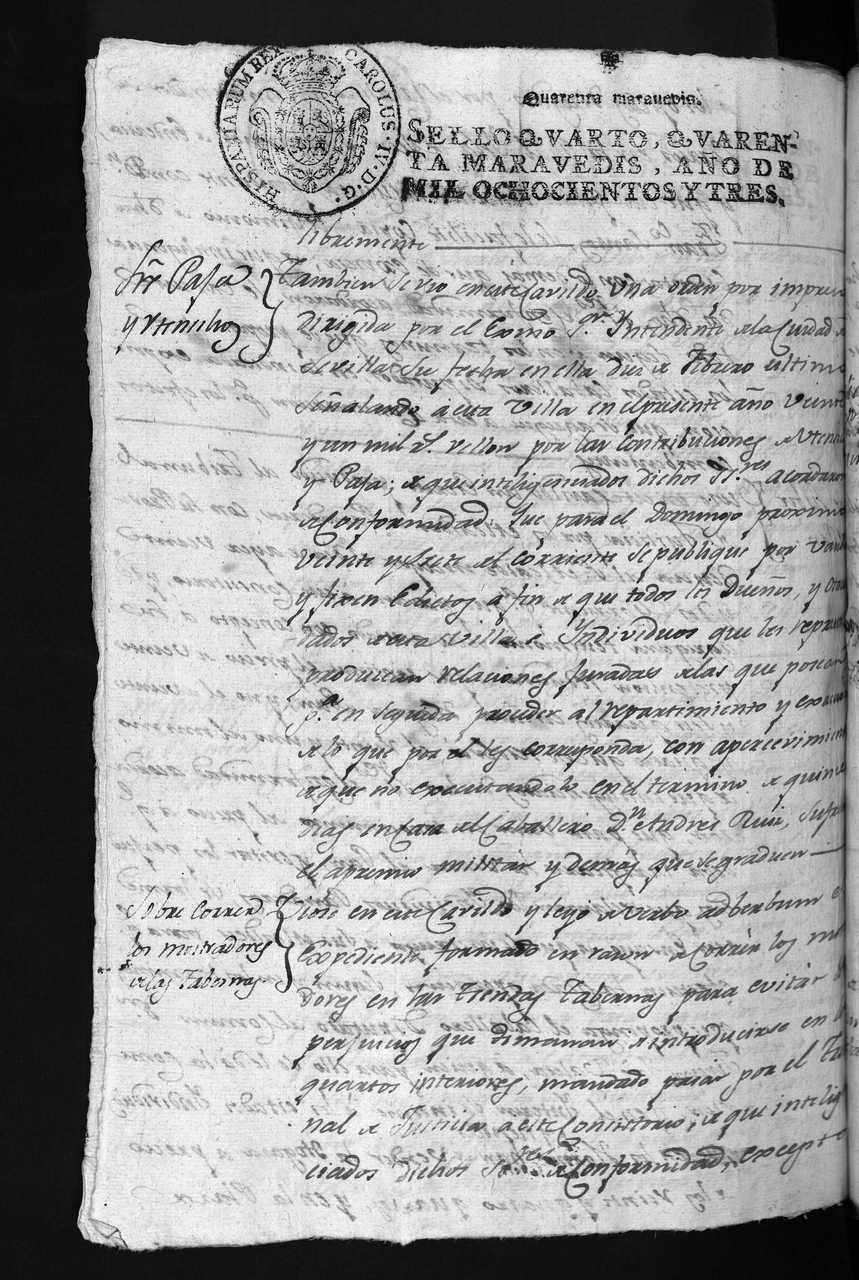 HISPANIARUM REX CAROLUS · IV · D · G ·
Quarenta maravedis.
SELLO QVARTO, QVAREN-
TA MARAVEDIS, AÑO DE
MIL OCHOCIENTOS Y TRES.
libremente
Sre Paja
y Vtensilios
Tambien se vio en este Cavildo una orñ por impres
dirigida por el Exmo Sr. Yntendente de la Ciudad de
Sevilla su fecha en ella dies de Febrero ultimo
señalando a esta Villa en el presente año veinte
y un mil rs. vellon por las contribuciones de Vtensi
y Paja; de que inteligenciados dichos SSres acordaron
de Conformidad, que para el Domingo proximo
veinte y siete del corriente se publique por vando
y fixen Edictos a fin de que todos los Dueños, y
lados de esta Villa e Yndividuos que les represen
produzcan relaciones juradas de las que poseen
pa. en seguida proceder al repartimiento y
de lo que por el les corresponda, con apercevimiento
de que no executandolo en el termino de quince
dias en casa del Caballero Dn. Andres Ruiz,
el apremio militar y demas que se graduen
Sobre Correr
los mostradores
de las Tabernas
Viose en este Cavildo y leyo de verbo adberbum el
Expediente formado en razon de Correr los mostra
dores en las tiendas Tabernas para evitar
perjuicios que dimanan de introducirse en
quartos interiores, mandado pasar por el Tribu
nal de Justicia a este Consistorio; de que intelig
ciados dichos Sores de Conformidad, except